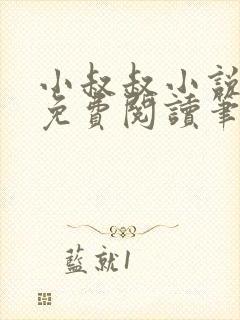 小叔叔小說
免費閱讀筆
藍就1